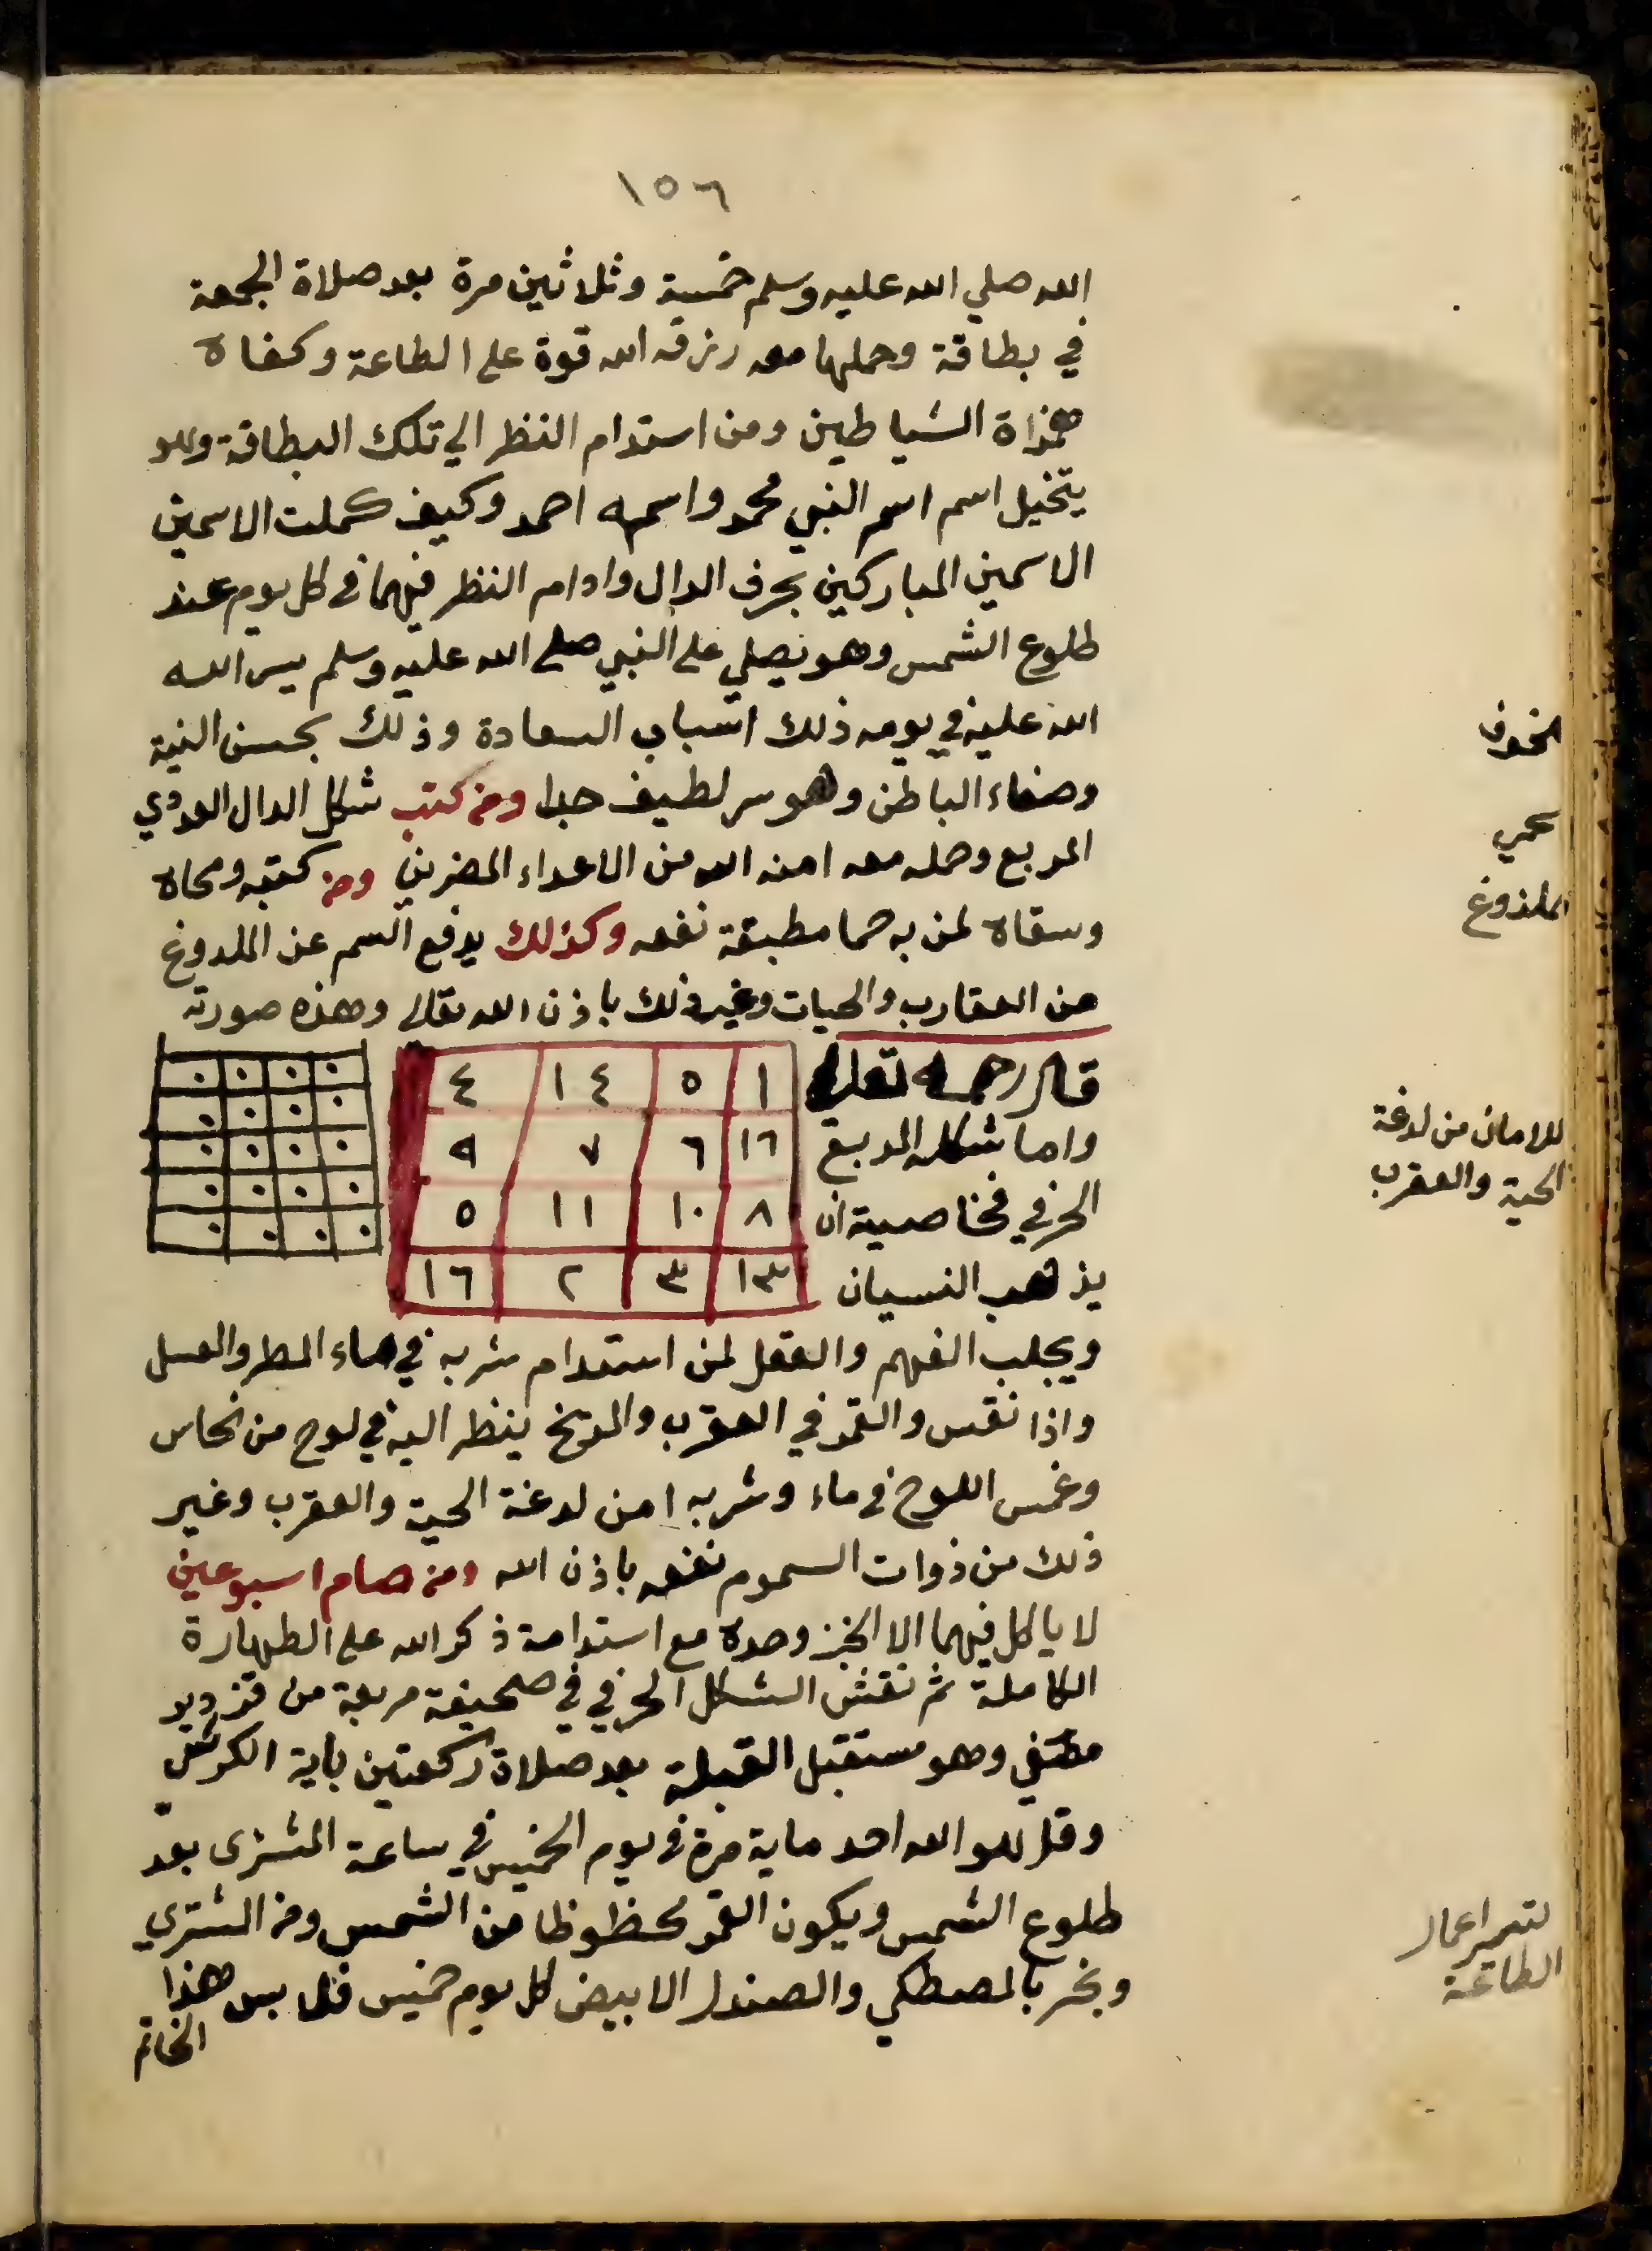 ١٥٦
الله صلي الله عليه وسلم خمسة وثلاثين مرة بعد صلاة الجمعة
في بطاقة وحملها معه رزقه الله قوة على الطاعة وكفاه
همزاة الشياطين ومن استدام النظر الي تلك البطاقة وهو
يتخيل اسم اسم النبي محمد واسمه احمد وكيف كملت الاسمين
الاسمين المباركين بحرف الدال وادام النظر فيهما في كل يوم عند
طلوع الشمس وهو يصلي على النبي صلى الله عليه وسلم يسر الله
الله عليه في يومه ذلك اسباب السعادة وذلك بحسن النية
وصفاء الباطن وهو سر لطيف جدا ومن كتب شكل الدال العددي
المربع وحمله معه امنه الله من الاعداء المضرين ومن كتبه ومحاه
وسقاه لمن به حما مطبقة نفعه وكذلك يدفع السم عن الملدوغ
من العقارب والحيات وغير ذلك باذن الله تعالى وهذه صورته
قال رحمه تعالى
واما شكله المربع
الحرفي فخاصيته ان
يذهب النسيان
١ ٥ ١٤ ٤
١٦ ٦ ٧ ٩
٨ ١٠ ١١ ٥
١٣ ٣ ٢ ١٦
ويجلب الفهم والعقل لمن استدام شربه في ماء المطر والعسل
واذا نقس والقمر في العقرب والمريخ ينظر اليه في لوح من نحاس
وغمس اللوح في ماء وشربه امن لدغة الحية والعقرب وغير
ذلك من ذوات السموم نفعه باذن الله ومن صام اسبوعين
لا ياكل فيهما الا الخبز وحده مع استدامة ذكر الله على الطهارة
الكاملة ثم نقش الشكل الحرفي في صحيفة مربعة من قزدير
مصفي وهو مستقبل القبلة بعد صلاة ركعتين باية الكرسي
وقل هو الله احد ماية مرة في يوم الخميس في ساعة المشترى بعد
طلوع الشمس ويكون القمر محظوظا من الشمس ومن المشتري
وبخر بالمصطكي والصندل الابيض كل يوم خميس فلابس هذا
الخاتم
للخوف
للحمي
للملذوغ
للامان من لدغة
الحية والعقرب
لتيسير اعمال
الطاعة